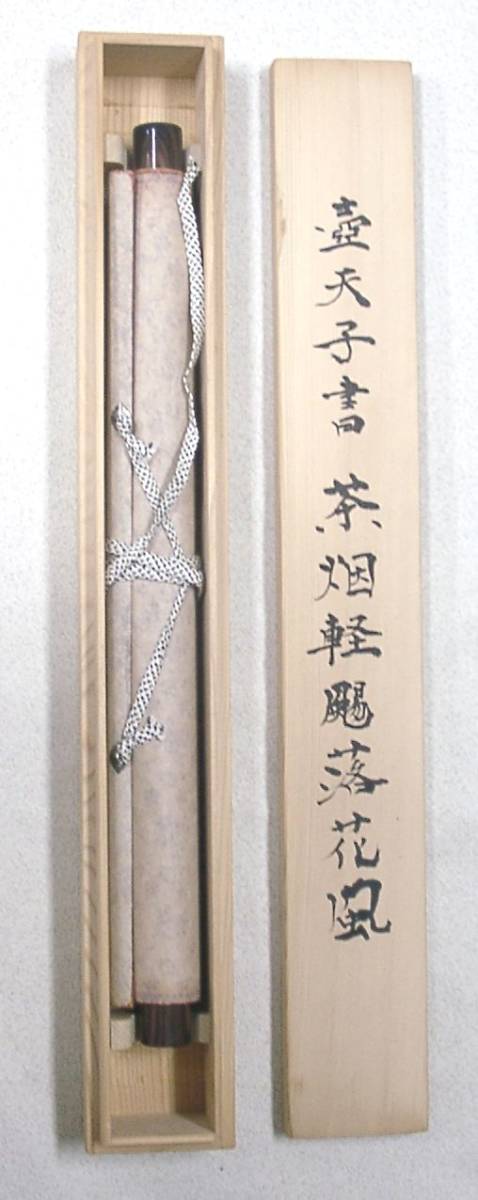 壺天子書 茶烟軽颺落花風